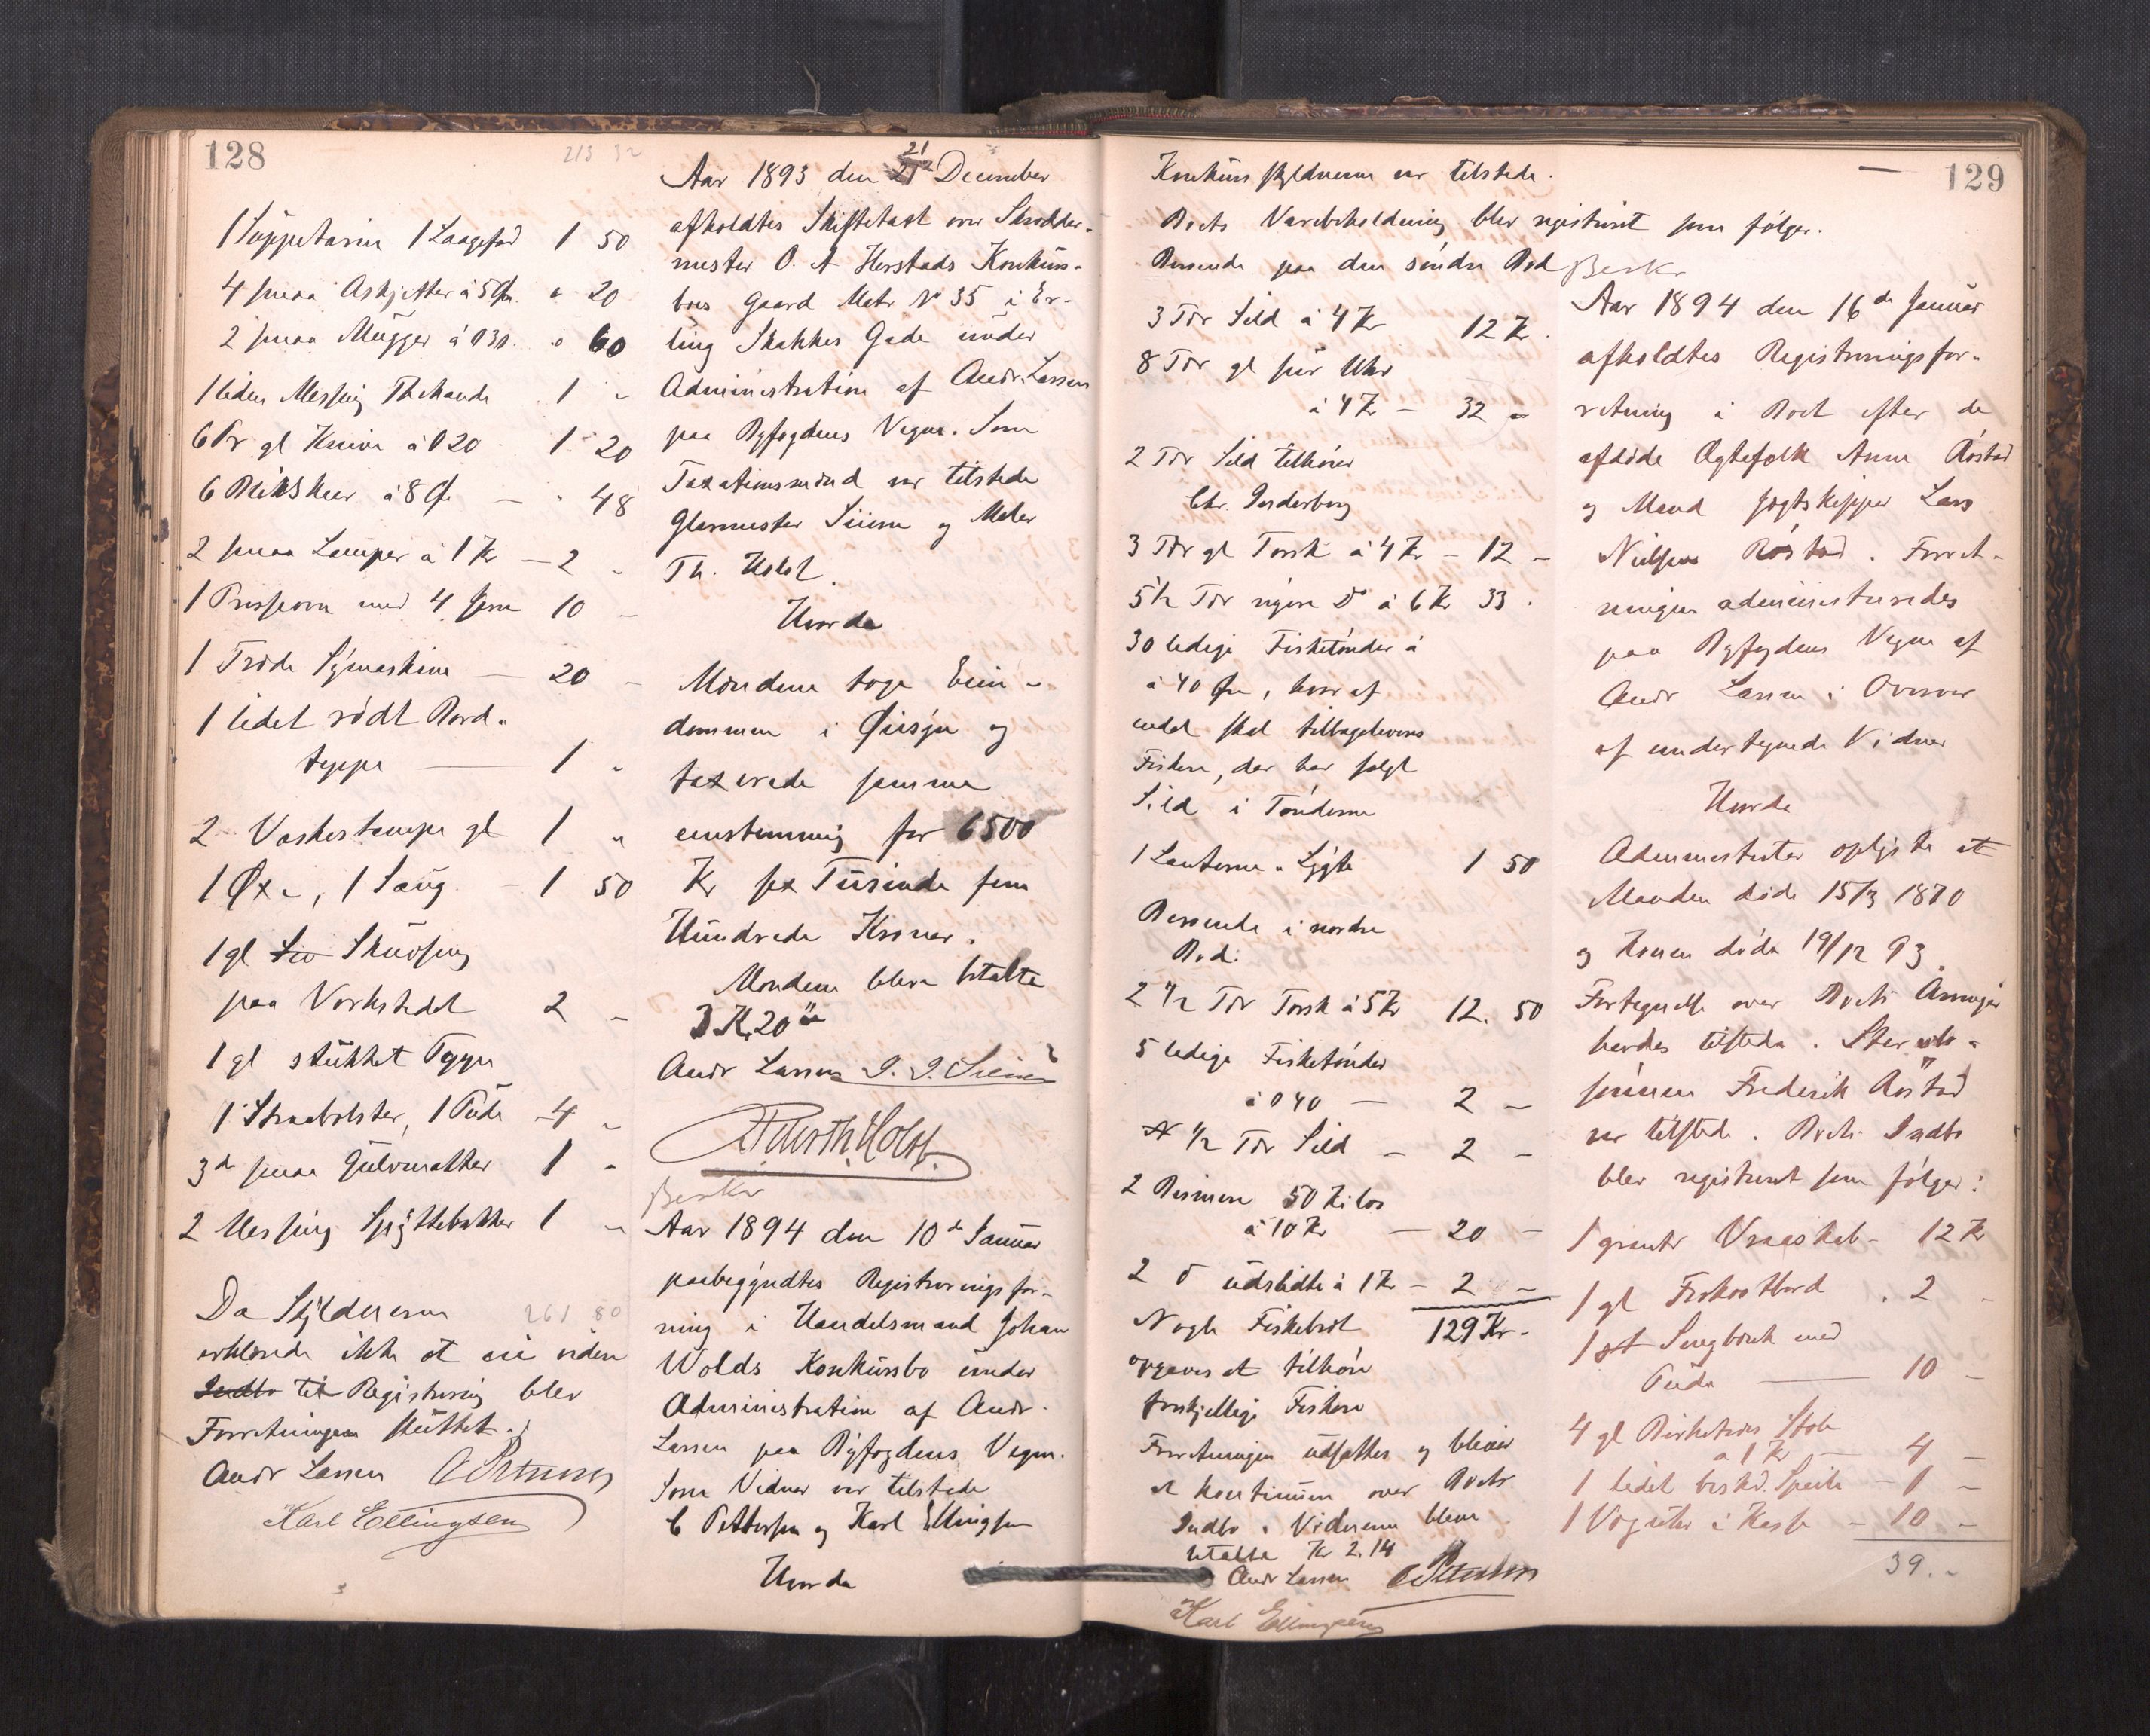 128
213 32
1 Suppeterin 1 Laagefad 1 50
4 smaa Askjetter à 5 Øre " 20
2 smaa Mugger à 0 30 " 60
1 liden Messing Thekande 1 "
6 Pr gl Knive à 0 20 1 20
6 Blikskeer à 8 Ø — " 48
2 smaa Lamper à 1 Kr — 2 "
1 med 4 Jern 10 —
1 Træde Symaskine — 20 —
1 lidet rødt Bord-
teppe — 1 "
2 Vaskestampe gl 1 "
1 Øxe, 1 Saug — 1 50
1 gl
paa Verkstedet 2 —
1 gl stukket Teppe
1 Straabolster, 1 Pude — 4 "
3de smaa Gulvmatter 1 "
2 Messing Spyttebakker 1 "
Da Skylderen 261 80
erklærede ikke at eie videre
Indbo til Registrering blev
Forretningen sluttet.
Andr Larsen C Pettersen
Karl Ellingsen
Aar 1893 den 21 December
afholdtes Skiftetaxt over Skrædder-
mester O. A Herstads Konkurs-
boes Gaard Matr No 35 i Er-
ling Skakkes Gade under
Administration af Andr. Larsen
paa Byfogdens Vegne. Som
Taxationsmænd var tilstede
Glarmester Siem og Maler
Th. Holst.
Hvorda
Mændene toge Eien-
dommen i Øiesyn og
taxerede samme
enstemmig for 6500
Kr sex Tusinde fem
Hundrede Kroner.
Mændene bleve betalte
3 Kr. 20
Andr Larsen I. I. Siem
Th. Holst.
Beskr
Aar 1894 den 10de Januar
paabegyndtes Registreringsfor-
ning i Handelsmand Johan
Wolds Konkursbo under
Administration af Andr.
Larsen paa Byfogdens Vegne.
Som Vidner var tilstede
C Pettersen og Karl Ellingsen
Hvorda
129
Konkursskyldneren var tilstede.
Boets Varebeholdning blev registreret som følger.
Beroende paa den søndre Bod
3 Tdr Sild à 4 Kr 12 Kr.
8 Tdr gl
à 4 Kr — 32 "
2 Tdr Sild tilhører
Chr.
3 Tdr gl Torsk à 4 Kr — 12 —
5½ Tdr nyere Do à 6 Kr 33 .
30 ledige Fisketønder à
à 40 Øre, hvoraf
endel skal tilbageleveres
Fiskere, der har solgt
Sild i Tønderne
1 Lanterne-Lygte 1 50
Beroende i nordre
Bod:
2½ Tdr Torsk à 5 Kr 12. 50
5 ledige Fisketønder
à 0 40 — 2 —
½ Tdr Sild — 2 —
2 Bismere 50 Kilos
à 10 Kr — 20 —
2 udslidte à 1 Kr — 2 —
Nogle Fiskebrot 129 Kr.
opgaves at tilhøre
forskjellige Fiskere
Forretningen udsattes og bliver
at kontinuere over Boets
Indbo. Vidnerne bleve
betalte Kr 2,14
Andr Larsen C Pettersen
Karl Ellingsen
Beskr
Aar 1894 den 16de Januar
afholdtes Registreringsfor-
retning i Boet efter de
afdøde Ægtefolk Anne Røstad
og Mand Jægtskipper Lars
Nielsen Røstad. Forret-
ningen administreredes
paa Byfogdens Vegne af
Andr Larsen i Overvær
af undertegnede Vidner
Hvorda
Administrator oplyste at
Manden døde 15/3 1870
og Konen døde 19/12 93.
Fortegnelse over Boets Arvinger
havdes tilstede. Stervbo-
sønnen Frederik Røstad
var tilstede. Boets Indbo
blev registreret som følger:
1 grønt Vraaskab — 12 Kr
1 gl Frokostbord . 2 —
1 st Sengbænk med
Pude — 10 —
4 gl Birketræs Stole
à 1 Kr — 4 —
1 lidet beskd. Speile — 1 —
1 Væguhr i Kasse — 10 —
39. —